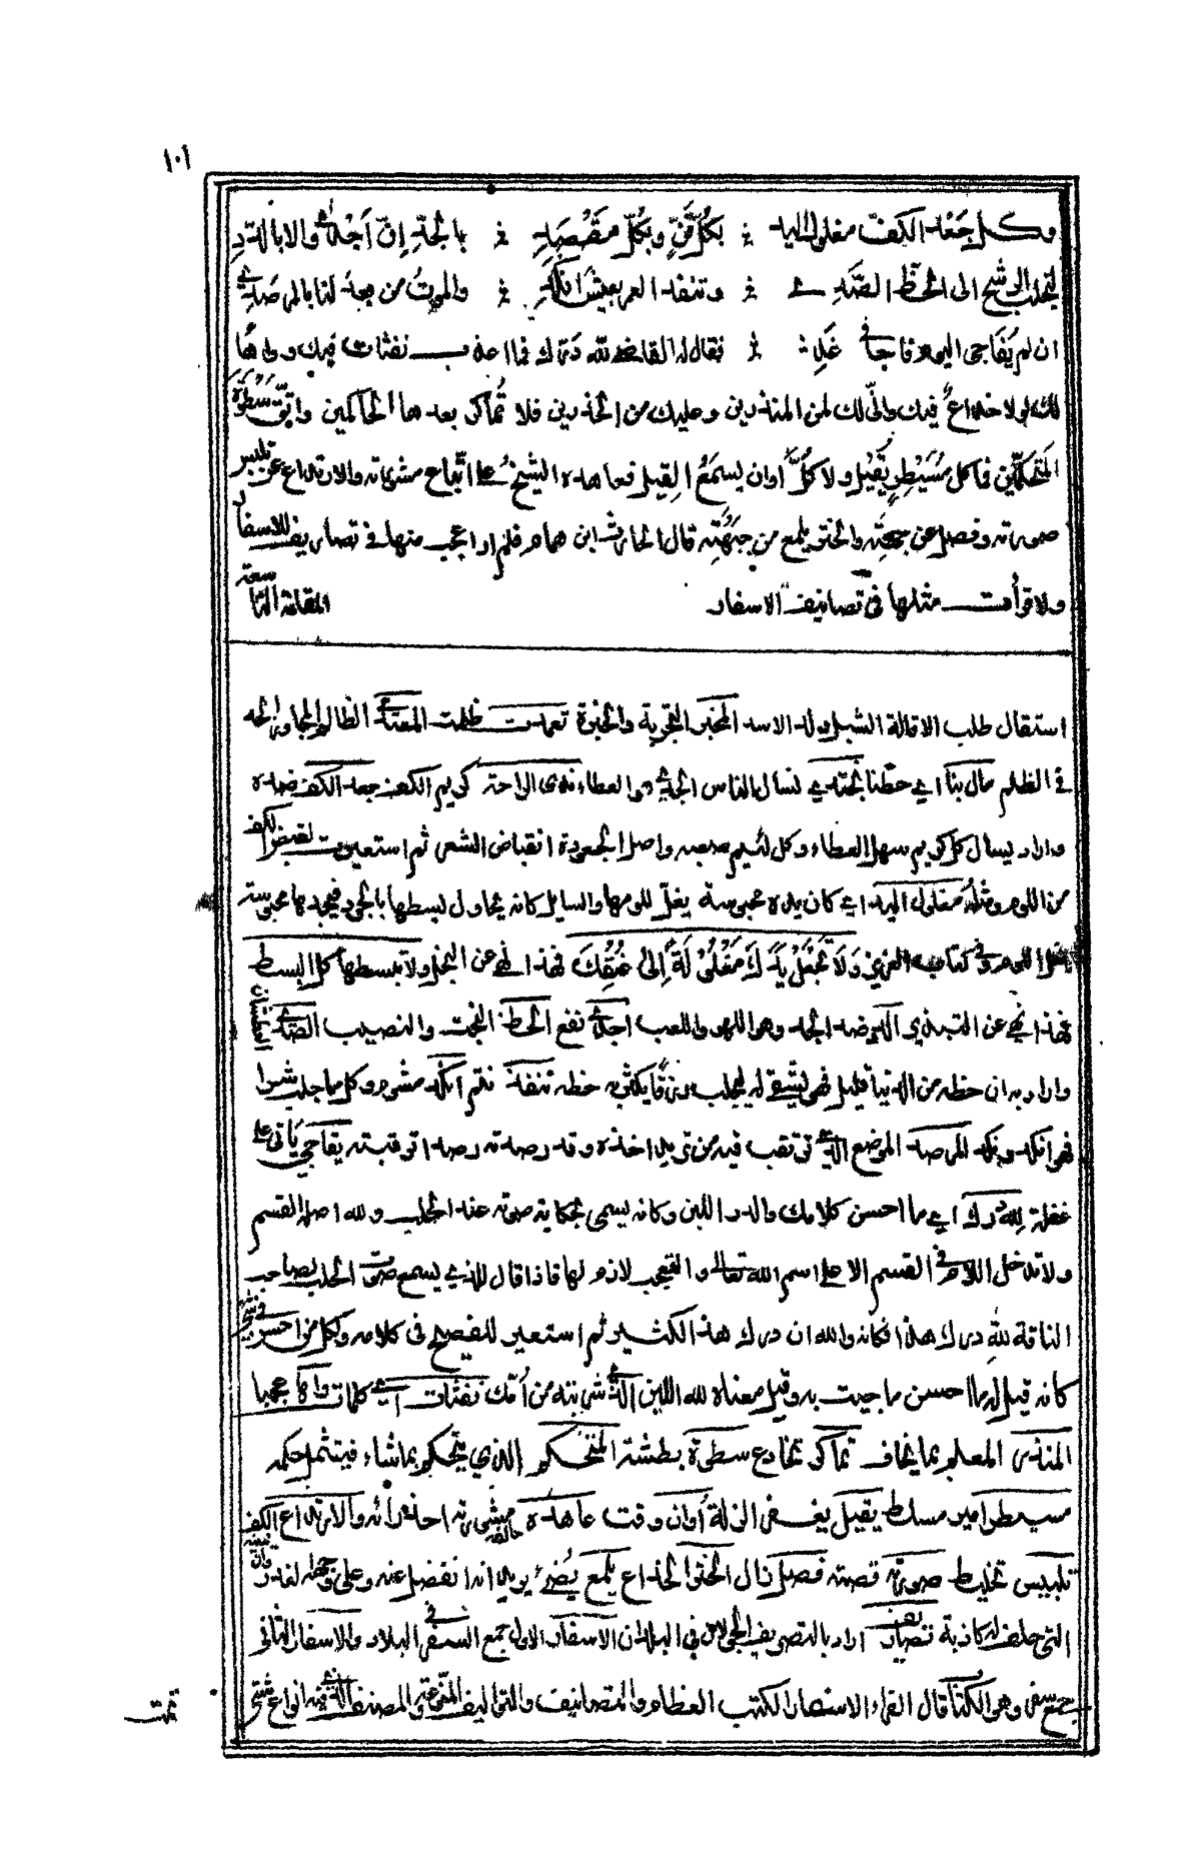 ١٠١
وكل جَعْد الكفّ مغلول اليد ؞ بكلّ فَنٍّ وبكلّ مَقْصَدِ ؞ بالجدّ إنْ أَجْدى والا بالدَدِ
لنجلب الرشح الى الحظّ الصَدِي ؞ وننفد العمر بعيش انكدِ ؞ والموتُ من بعد لنا بالمرصدِ
ان لم يُفاجى اليوم فاجى في غدِ ؞ فقال له القاضي لله درك فما اعذب نفثات فيك وواهًا
لك لولا خداعٌ فيك وانّي لك لمن المنذرين وعليك من الحذرين فلا تُماكر بعدها الحاكمين واتّق سَطْوَة
المتحكّمين فما كل مُسَيْطِرٍ يُقيل ولا كلَّ أوان يسمَعُ القِيل فعاهده الشيخُ على اتّباع مشورته والارتداع عن تلبيس
صورته وفصل عن جهته والختر يلمع من جبهته قال الحارث ابن همام فلم ار اعجب منها في تصاريف الاسفار
ولا قرأت مثلها في تصانيف الاسفار المقامة التاسعة
استقال طلب الاقالة الشبل ولد الاسد المخبر التجربة والخبرة تعدت ظلمت المعتدي الظالم المجاوز الحد
في الظلم مال بنا اي حطنا نجتدي نسال الناس الجدي وهو العطاء ندي الراحة كريم الكف جعد الكف ضده
واراد يسال كل كريم سهل العطاء وكل لئيم صعبه واصل الجعودة انقباض الشعر ثم استعيرت لقبض الكف
من اللوم ومثله مغلول اليد اي كان يده محبوسة بغلّ للومها والسايل كانه يحاول بسطها بالجود فيجدها محبوسة
بغل اللوم وفي كتاب العزيز وَلَا تَجْعَلْ يَدَكَ مَغْلُولَةً إِلى عُنُقِكَ فهذا نهي عن البخل ولا تبسطها كل البسط
فهذا نهي عن التبذير الدد ضد الجد وهو اللهو واللعب اجدى نفع الحظ البخت والنصيب الصدي العطشان
واراد به ان حظه من الدنيا قليل فهو يشقى له ليجلب رزقًا يكثر به حظه ننفد نتم انكد مشوم وكل ما جلب شرا
فهو انكد ونكد المرصد الموضع الذي ترتقب فيه من تريد اخذه وقد رصدته رصدا ترقبته يفاجي ياتي على
غفلة لله درك اي ما احسن كلامك والدر اللبن وكانه يسمى بحكاية صوته عند الحلب ولله اصله القسم
ولا تدخل اللام في القسم الا على اسم الله تعالى والتعجب لازم لها فاذا قال للذي يسمع صوت الحلب لصاحب
الناقة لله درك هذا فكانه والله ان درك هذا لكثير ثم استعير للفصيح في كلامه ولكل من احسن في شي
كانه قيل له ما احسن ما جيت به وقيل معناه لله اللبن الذي شربته من أمك نفثات اي كلمات واها عجبا
المنذر المعلم بما يخاف تماكر تخادع سطوة بطشة المتحكم الذي يتحكم بما شاء فيمتثل حكمه
مسيطر امير مسلط يقيل يغفر الزلة أوان وقت عاهده حالفه مشورته اخذ رائه والارتداع الكف
تلبيس تخليط صورته قصته فصل زال الختر الخداع يلمع يُضيء يريد انه انفصل عنه وعلى وجهه لغدره
التي حلف له كاذبة تصاريف اراد بالتصريف الجولان في البلدان الاسفار الاول جمع السفر في البلاد والاسفار الثاني
جمع سفر وهو الكتاب قال الفراء الاسفار الكتب العظام والتصانيف والتواليف المنوعة والمصنف الذي فيه انواع شتى
تمت